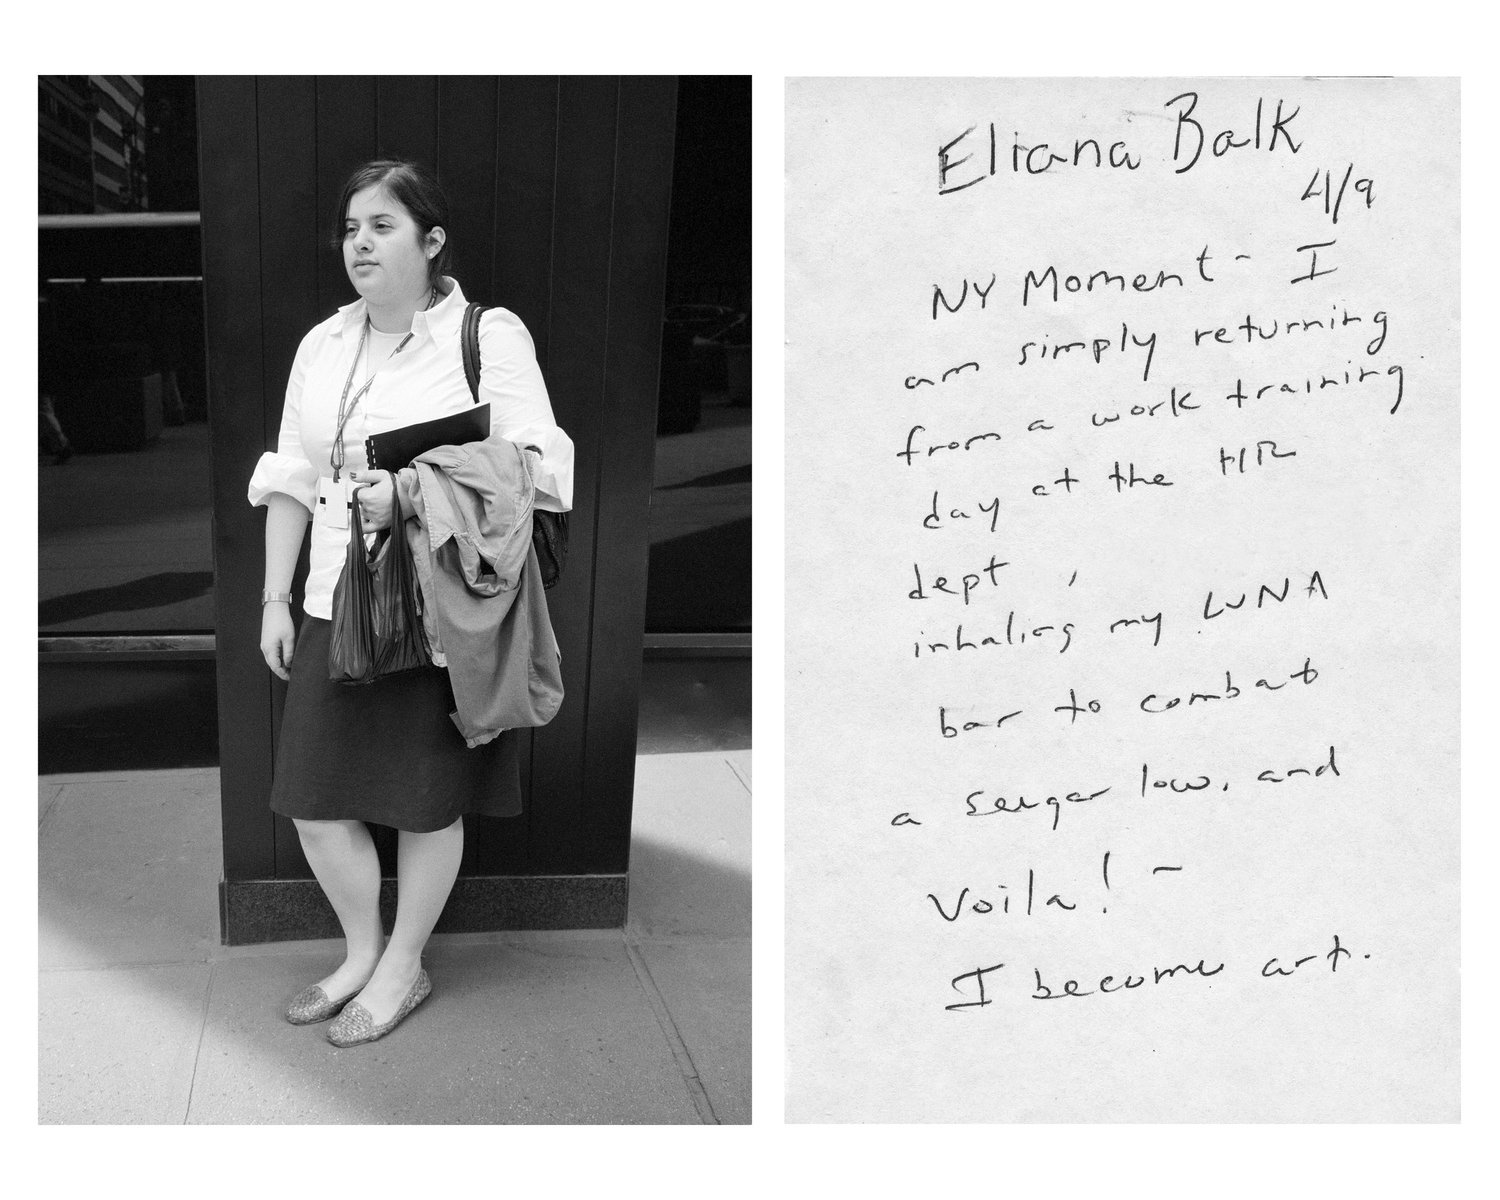 Eliana Balk
4/9
NY Moment - I
am simply returning
from a work training
day at the HR
dept,
inhaling my LUNA
bar to combat
a sugar low, and
Voila! -
I become art.